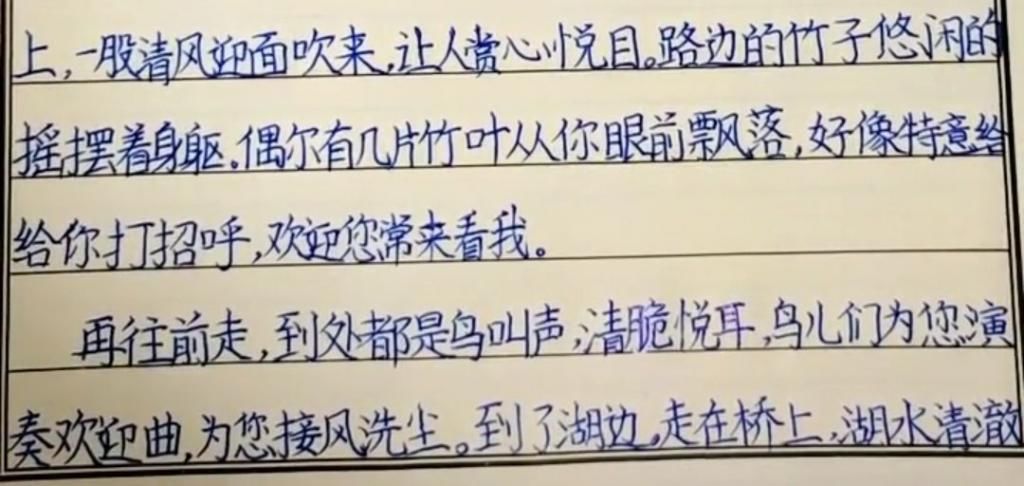 上,一股清风迎面吹来,让人赏心悦目。路边的竹子悠闲的
摇摆着身躯.偶尔有几片竹叶从你眼前飘落,好像特意给
给你打招呼,欢迎您常来看我。
再往前走,到处都是鸟叫声,清脆悦耳,鸟儿们为您演
奏欢迎曲,为您接风洗尘。到了湖边,走在桥上,湖水清澈